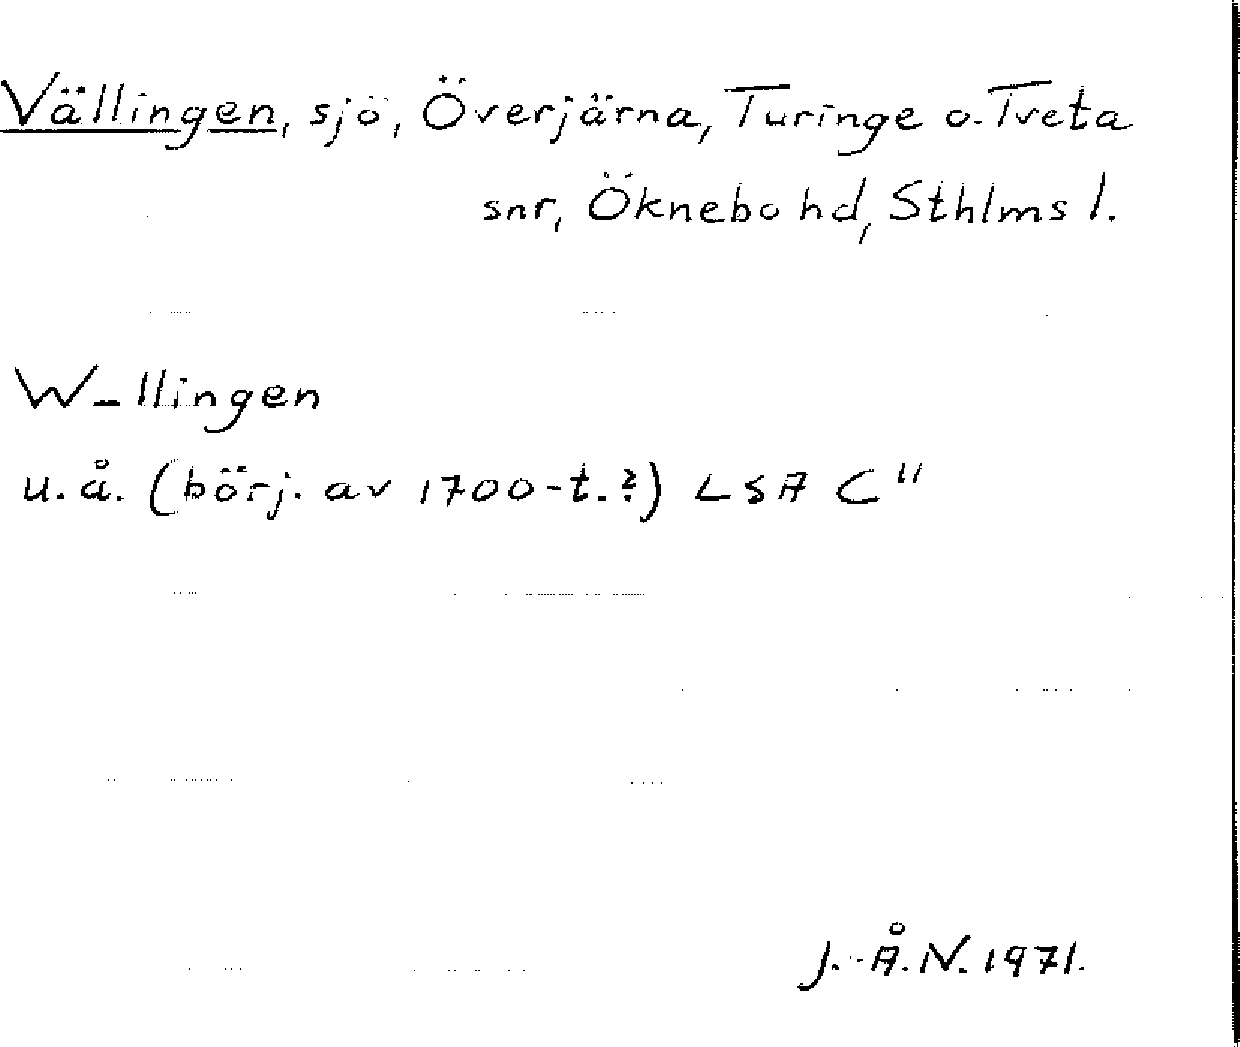 Vällingen, sjö, Överjärna, Turinge o. Tveta
snr, Öknebo hd, Sthlms l.
W_llingen
u.å. (börj. av 1700-t.?) LSA C"
J.-Å.N. 1971.